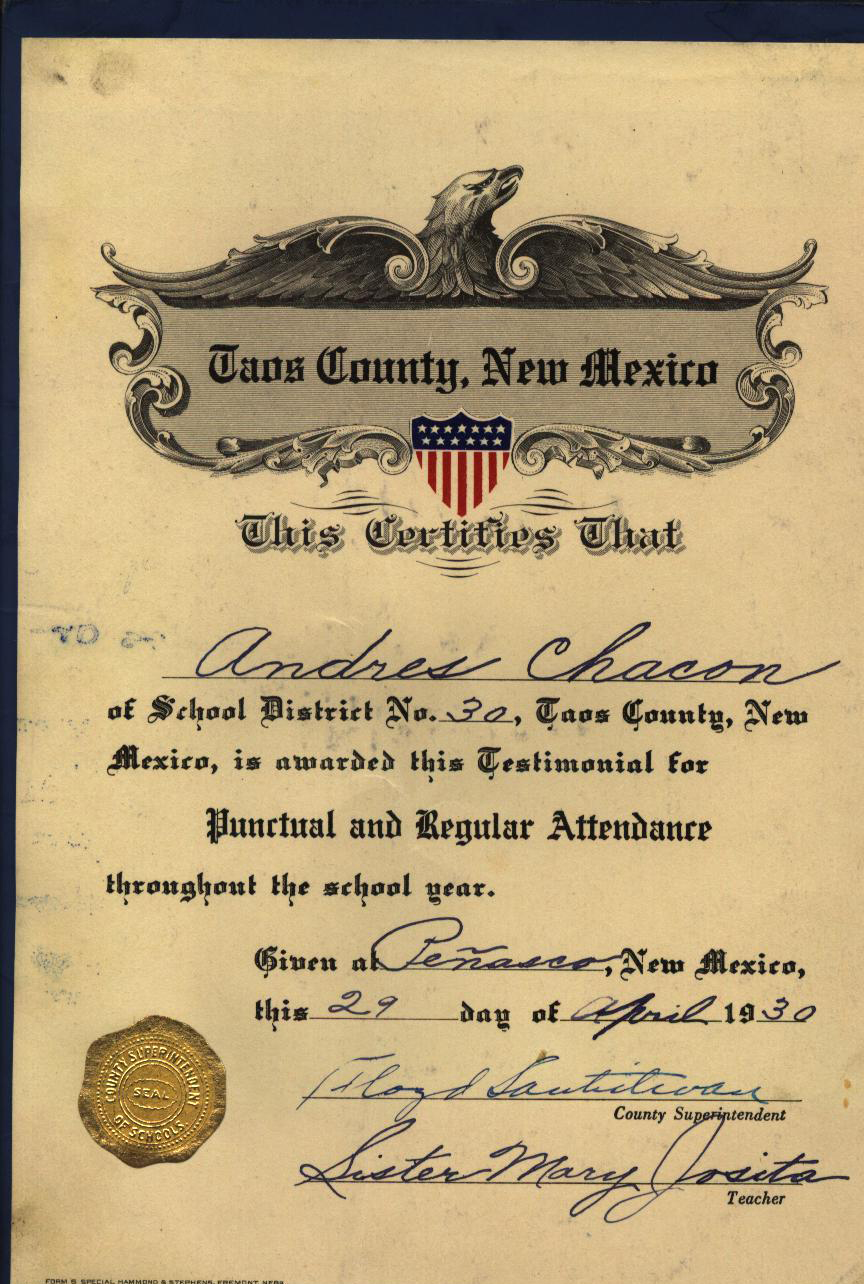 Taos County, New Mexico
This Certifies That
Andres Chacon
of School District No. 30, Taos County, New
Mexico, is awarded this Testimonial for
Punctual and Regular Attendance
throughout the school year.
Given at Peñasco, New Mexico,
this 29 day of April 1930
Floyd Santistevan
County Superintendent
Sister Mary Josita
Teacher
COUNTY SUPERINTENDENT
SEAL
OF SCHOOLS
FORM 5 SPECIAL HAMMOND & STEPHENS, FREMONT, NEBR.